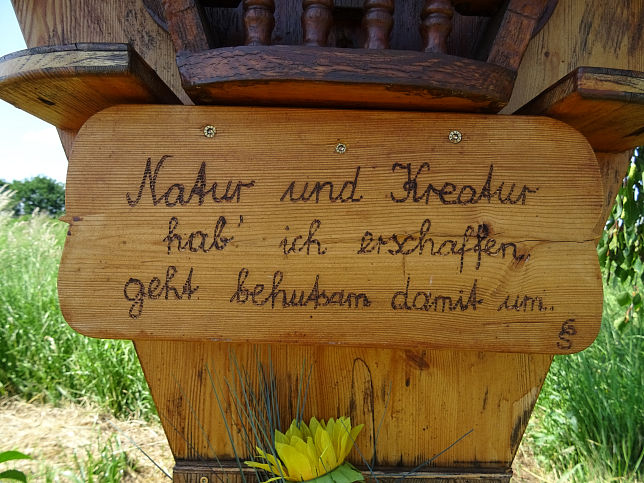 Natur und Kreatur
hab' ich erschaffen,
geht behutsam damit um..